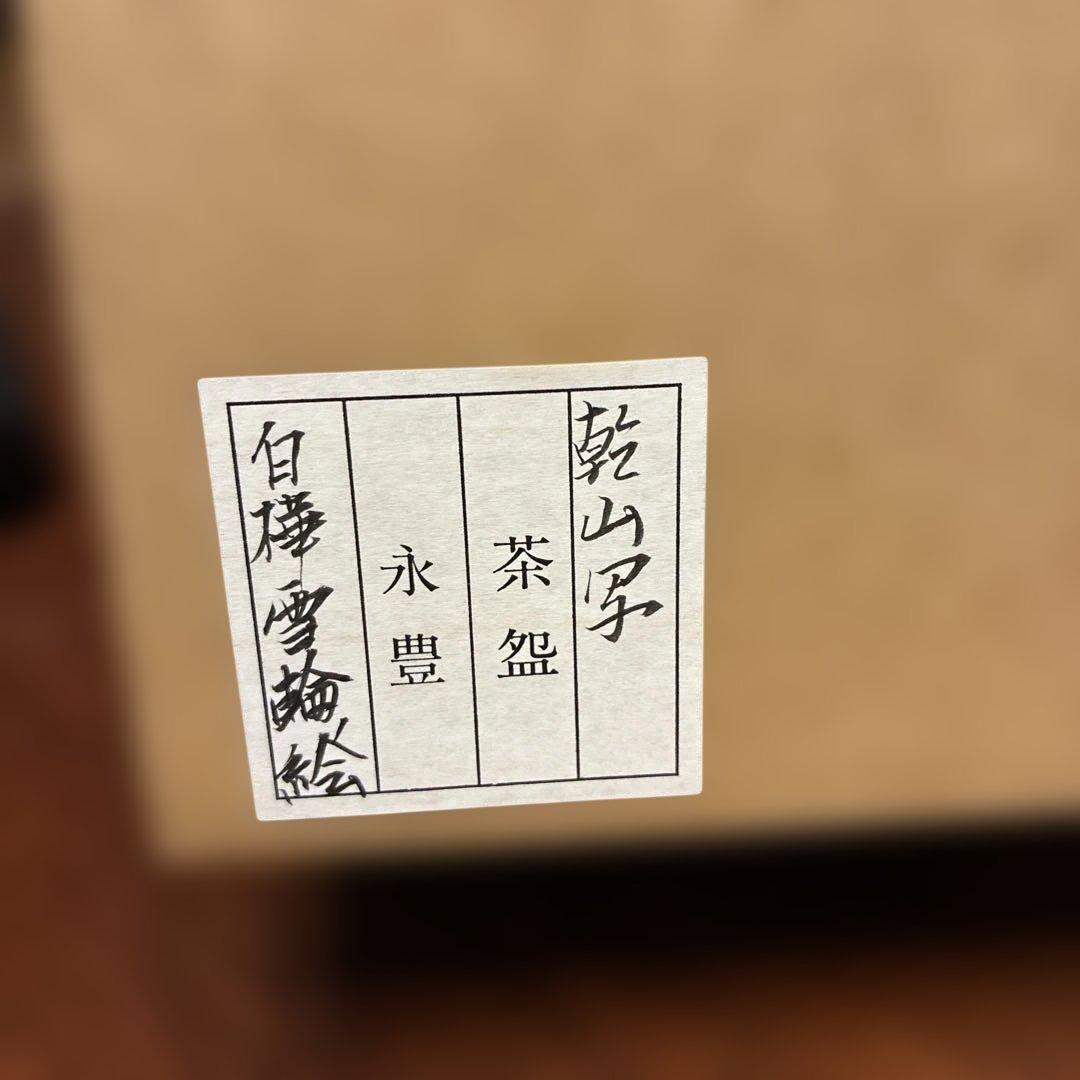 乾山写
茶盌
永豊
白樺雪輪絵